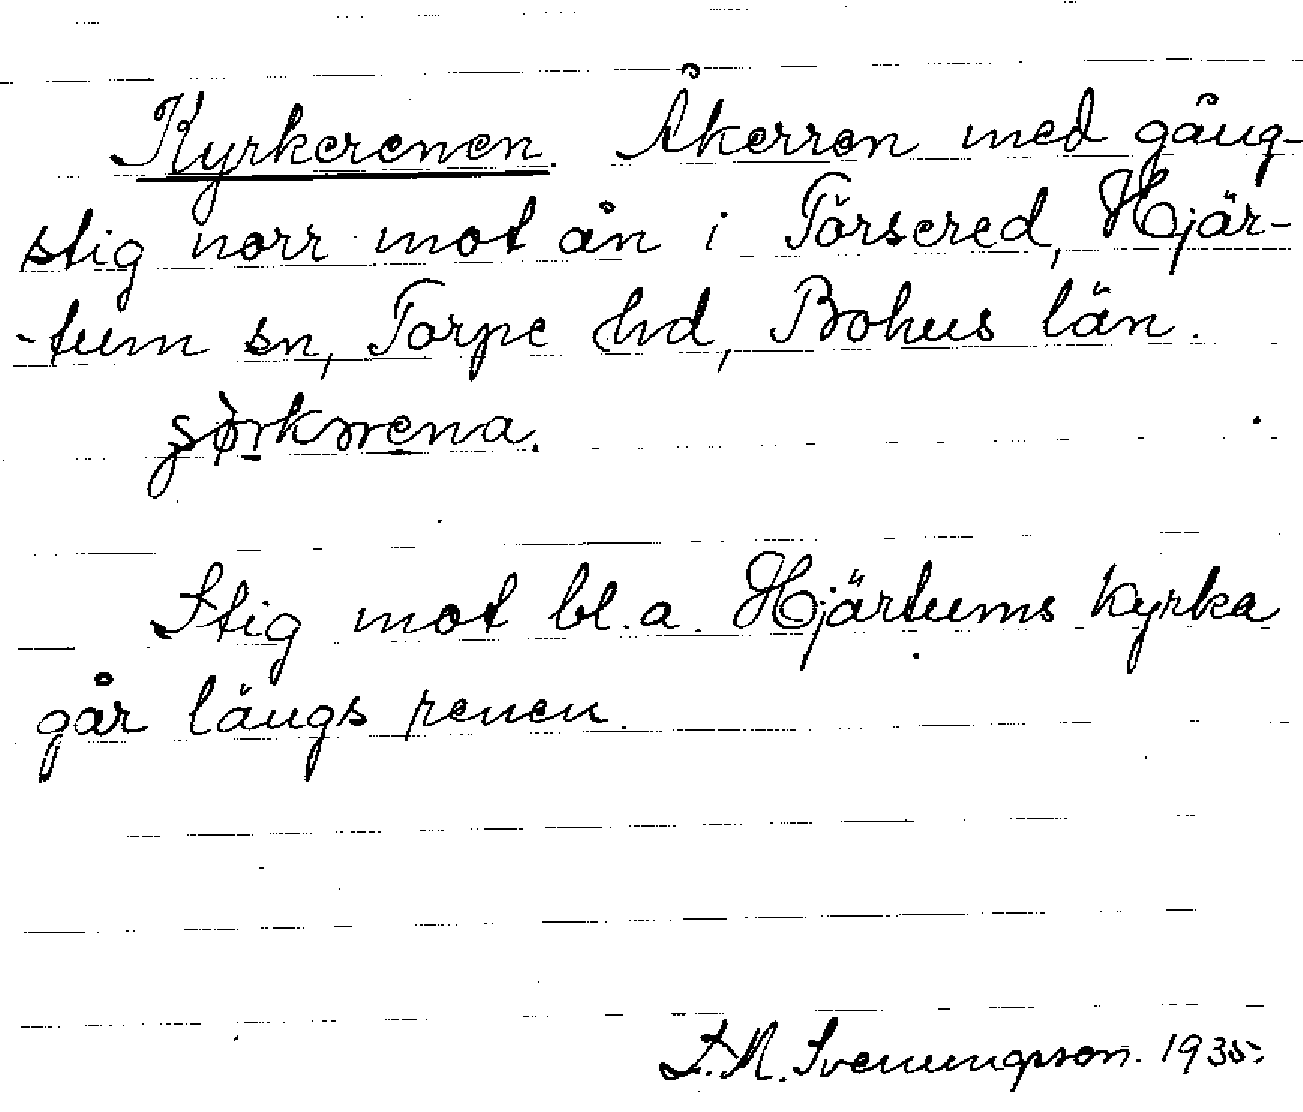 Kyrkerenen. Åkerren med gång-
stig norr mot ån i Torsered, Hjär-
-tum sn, Torpe hd, Bohus län.
Stig mot bl.a. Hjärtums kyrka
går längs renen.
S.M. Svenungsson. 1935.